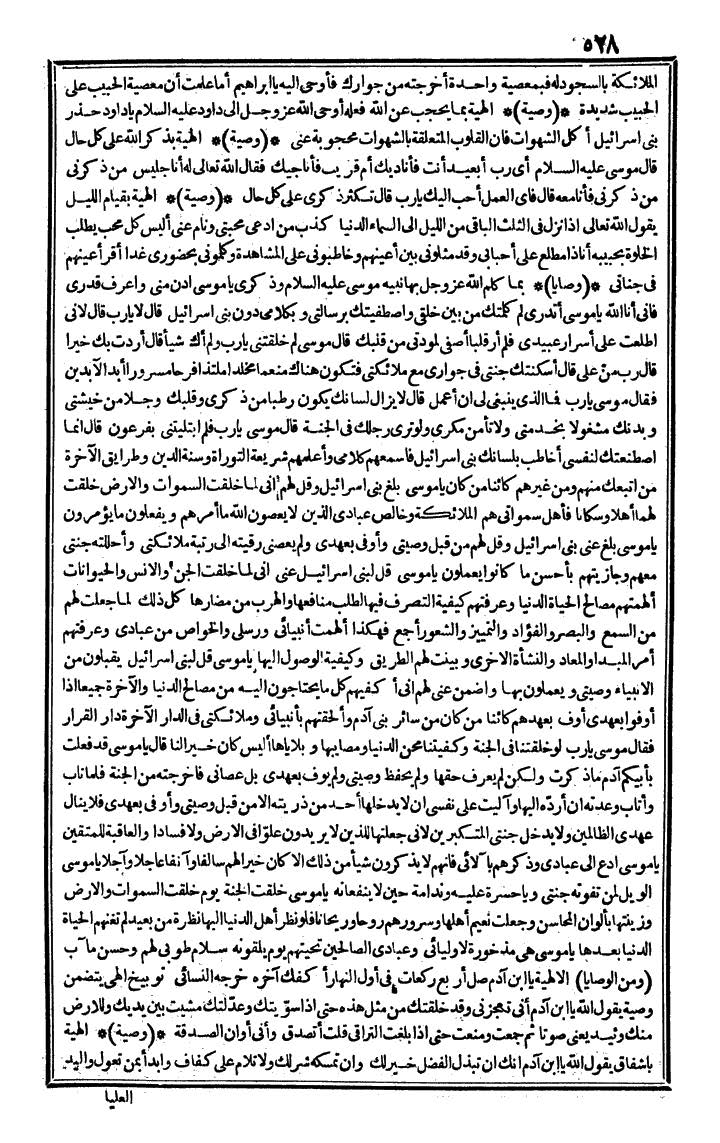 ٥٢٨
الملائكة بالسجود له فبمعصية واحدة أخرجته من جوارك فأوحى اليه يا ابراهيم أما علمت أن معصية الحبيب على
الحبيب شديدة *(وصية)* الهية بما يحجب عن الله فعله أوحى الله عز وجل الى داود عليه السلام يا داود حذر
بنى اسرائيل أكل الشهوات فان القلوب المتعلقة بالشهوات محجوبة عنى *(وصية)* الهية بذكر الله على كل حال
قال موسى عليه السلام أى رب أبعيد أنت فأناديك أم قريب فأناجيك فقال الله تعالى له أنا جليس من ذكرنى
من ذكرنى فأنا معه قال فاى العمل أحب اليك يارب قال تكثر ذكرى على كل حال *(وصية)* الهية بقيام الليل
يقول الله تعالى اذا نزل فى الثلث الباقى من الليل الى السماء الدنيا كذب من ادعى محبتى ونام عنى أليس كل محب يطلب
الخلوة بحبيبه أنا ذا مطلع على أحبابى وقد مثلونى بين أعينهم وخاطبونى على المشاهدة وكلمونى بحضورى غدا أقر أعينهم
فى جنانى *(وصايا)* بما كلم الله عز وجل بها نبيه موسى عليه السلام وذكرى ياموسى ادن منى واعرف قدرى
فانى أنا الله ياموسى أتدرى لم كلمتك من بين خلقى واصطفيتك برسالتى وبكلامى دون بنى اسرائيل قال لا يارب قال لانى
اطلعت على أسرار عبيدى فلم أر قلبا أصفى لمودتى من قلبك قال موسى لم خلقتنى يارب ولم أك شيأ قال أردت بك خيرا
قال رب منّ على قال أسكنتك جنتى فى جوارى مع ملائكتى فتكون هناك منعما مخلدا ملتذا فرحا مسرورا أبد الآبدين
فقال موسى يارب فما الذى ينبغى لى ان أعمل قال لا يزال لسانك يكون رطبا من ذكرى وقلبك وجلا من خشيتى
وبدنك مشغولا بخدمتى ولا تأمن مكرى ولو ترى رجلك فى الجنة قال موسى يارب فلم ابتليتنى بفرعون قال انما
اصطنعتك لنفسى أخاطب بلسانك بنى اسرائيل فاسمعهم كلامى وأعلمهم شريعة التوراة وسنة الدين وطرايق الآخرة
من اتبعك منهم ومن غيرهم كائنا من كان ياموسى بلغ بنى اسرائيل وقل لهم انى لما خلقت السموات والارض خلقت
لهما أهلا وسكانا فأهل سمواتى هم الملائكة وخالص عبادى الذين لا يعصون الله ما أمرهم ويفعلون ما يؤمرون
ياموسى بلغ عنى بنى اسرائيل وقل لهم من قبل وصيتى وأوفى بعهدى ولم يعصنى رقيته الى رتبة ملائكتى وأحللته جنتى
معهم وجازيتهم بأحسن ما كانوا يعملون ياموسى قل لبنى اسرائيل عنى انى لما خلقت الجن والانس والحيوانات
ألهمتهم مصالح الحياة الدنيا وعرفتهم كيفية التصرف فيها لطلب منافعها والهرب من مضارها كل ذلك لما جعلت لهم
من السمع والبصر والفؤاد والتمييز والشعور أجمع فهكذا ألهمت أنبيائى ورسلى والخواص من عبادى وعرفتهم
أمر المبدا والمعاد والنشأة الاخرى وبينت لهم الطريق وكيفية الوصول اليها ياموسى قل لبنى اسرائيل يقبلون من
الانبياء وصيتى ويعملون بها واضمن عنى لهم انى أكفيهم كل ما يحتاجون اليه من مصالح الدنيا والآخرة جميعا اذا
أوفوا بعهدى أوف بعهدهم كائنا من كان من سائر بنى آدم وألحقتهم بأنبيائى وملائكتى فى الدار الآخرة دار القرار
فقال موسى يارب لو خلقتنا فى الجنة وكفيتنا محن الدنيا ومصايبها وبلاياها أليس كان خيرا لنا قال ياموسى قد فعلت
بأبيكم آدم ما ذكرت ولكن لم يعرف حقها ولم يحفظ وصيتى ولم يوف بعهدى بل عصانى فأخرجته من الجنة فلما تاب
وأناب وعدته ان أرده اليها وآليت على نفسى ان لا يدخلها أحد من ذريته الا من قبل وصيتى وأوفى بعهدى فلا ينال
عهدى الظالمين ولا يدخل جنتى المتكبرين لانى جعلتها للذين لا يريدون علوّا فى الارض ولا فسادا والعاقبة للمتقين
ياموسى ادع الى عبادى وذكرهم بآلائى فانهم لا يذكرون شيأ من ذلك الا كان خيرا لهم سالفا وآنفا عاجلا وآجلا ياموسى
الويل لمن تفوته جنتى ويا حسرة عليه وندامة حين لا ينفعانه ياموسى خلقت الجنة يوم خلقت السموات والارض
وزينتها بألوان المحاسن وجعلت نعيم أهلها وسرورهم روحا وريحانا فلو نظر أهل الدنيا اليها نظرة من بعيد لم تهنهم الحياة
الدنيا بعدها ياموسى هى مذخورة لاوليائى وعبادى الصالحين تحيتهم يوم يلقونه سلام طوبى لهم وحسن مآب
(ومن الوصايا) الالهية يا ابن آدم صل أربع ركعات فى أول النهار أكفك آخره خرجه النسائى توبيخ الهى يتضمن
وصية يقول الله يا ابن آدم أنى تعجزنى وقد خلقتك من مثل هذه حتى اذا سوّيتك وعدّلتك مشيت بين بردين وللارض
منك وئيد يعنى صوتا ثم جمعت ومنعت حتى اذا بلغت التراقى قلت أتصدق وأنى أوان الصدقة *(وصية)* الهية
باشفاق يقول الله يا ابن آدم انك ان تبذل الفضل خير لك وان تمسكه شر لك ولا تلام على كفاف وابدأ بمن تعول واليد
العليا